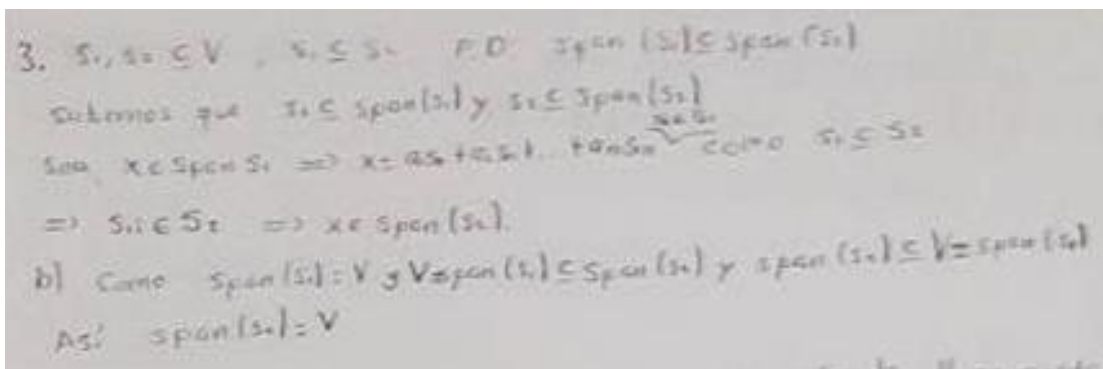 3. S₁, S₂ ⊆ V, S₁ ⊆ S₂ P.D span (S₁) ⊆ span (S₂)
Sabemos que S₁ ⊆ span(S₁) y S₂ ⊆ span(S₂)
Sea x ∈ Span S₁ => x = aS₁ + a₂S₂ + .. + aₙSₙ como S₁ ⊆ S₂
=> Sᵢ ∈ S₂ => x ∈ span (S₂).
b) Como Span (S₁) = V y V = span (S₁) ⊆ Span (S₂) y span (S₂) ⊆ V = span (S₁)
Así span (S₂) = V